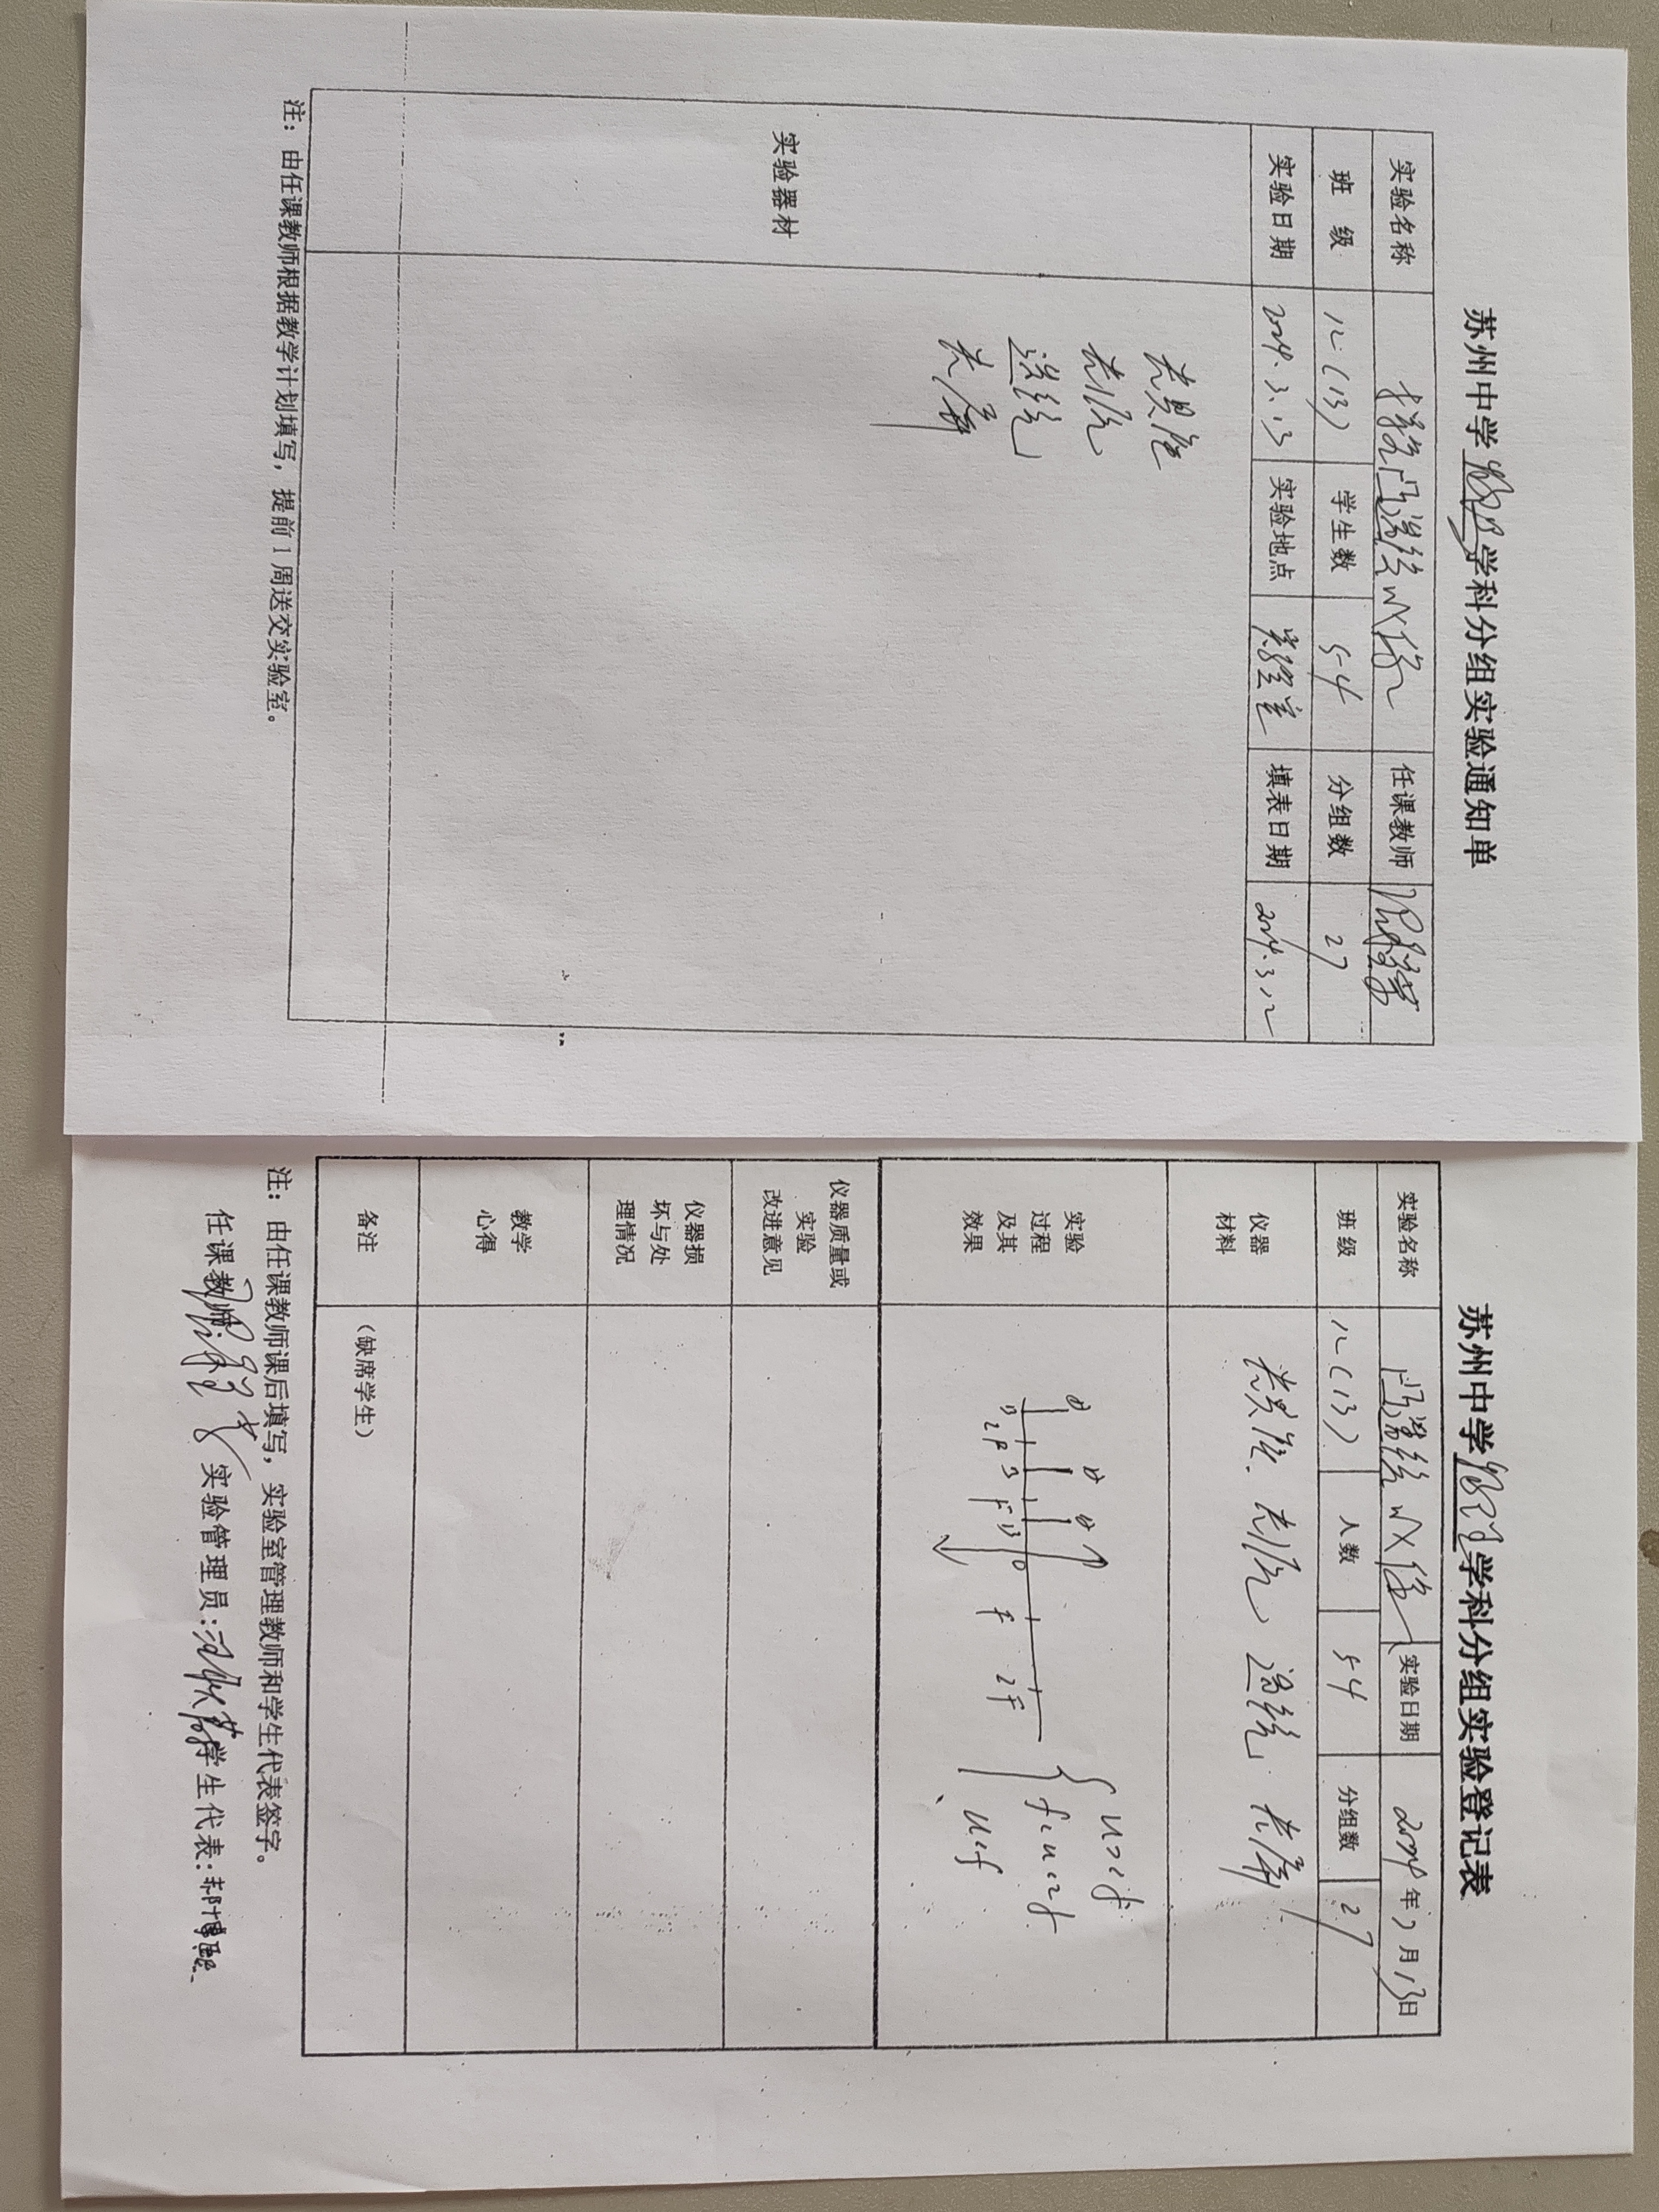 苏州中学物理学科分组实验通知单
实验名称 探究凸透镜成像 任课教师
班级 八(13) 学生数 54 分组数 27
实验日期 2024.3.13 实验地点 实验室 填表日期 2024.3.12
实验器材
光具座
光源
透镜
光屏
注：由任课教师根据教学计划填写，提前1周送交实验室。
苏州中学物理学科分组实验登记表
实验名称 凸透镜成像 实验日期 2024年3月13日
班级 八(13) 人数 54 分组数 27
仪器材料 光具座、光源、透镜、光屏
实验过程及其效果
2F F O F 2F
u>2f
f<u<2f
u<f
仪器质量或实验改进意见
仪器损坏与处理情况
教学心得
备注 （缺席学生）
注：由任课教师课后填写，实验室管理教师和学生代表签字。
任课教师: 实验管理员: 学生代表: 郝博熙